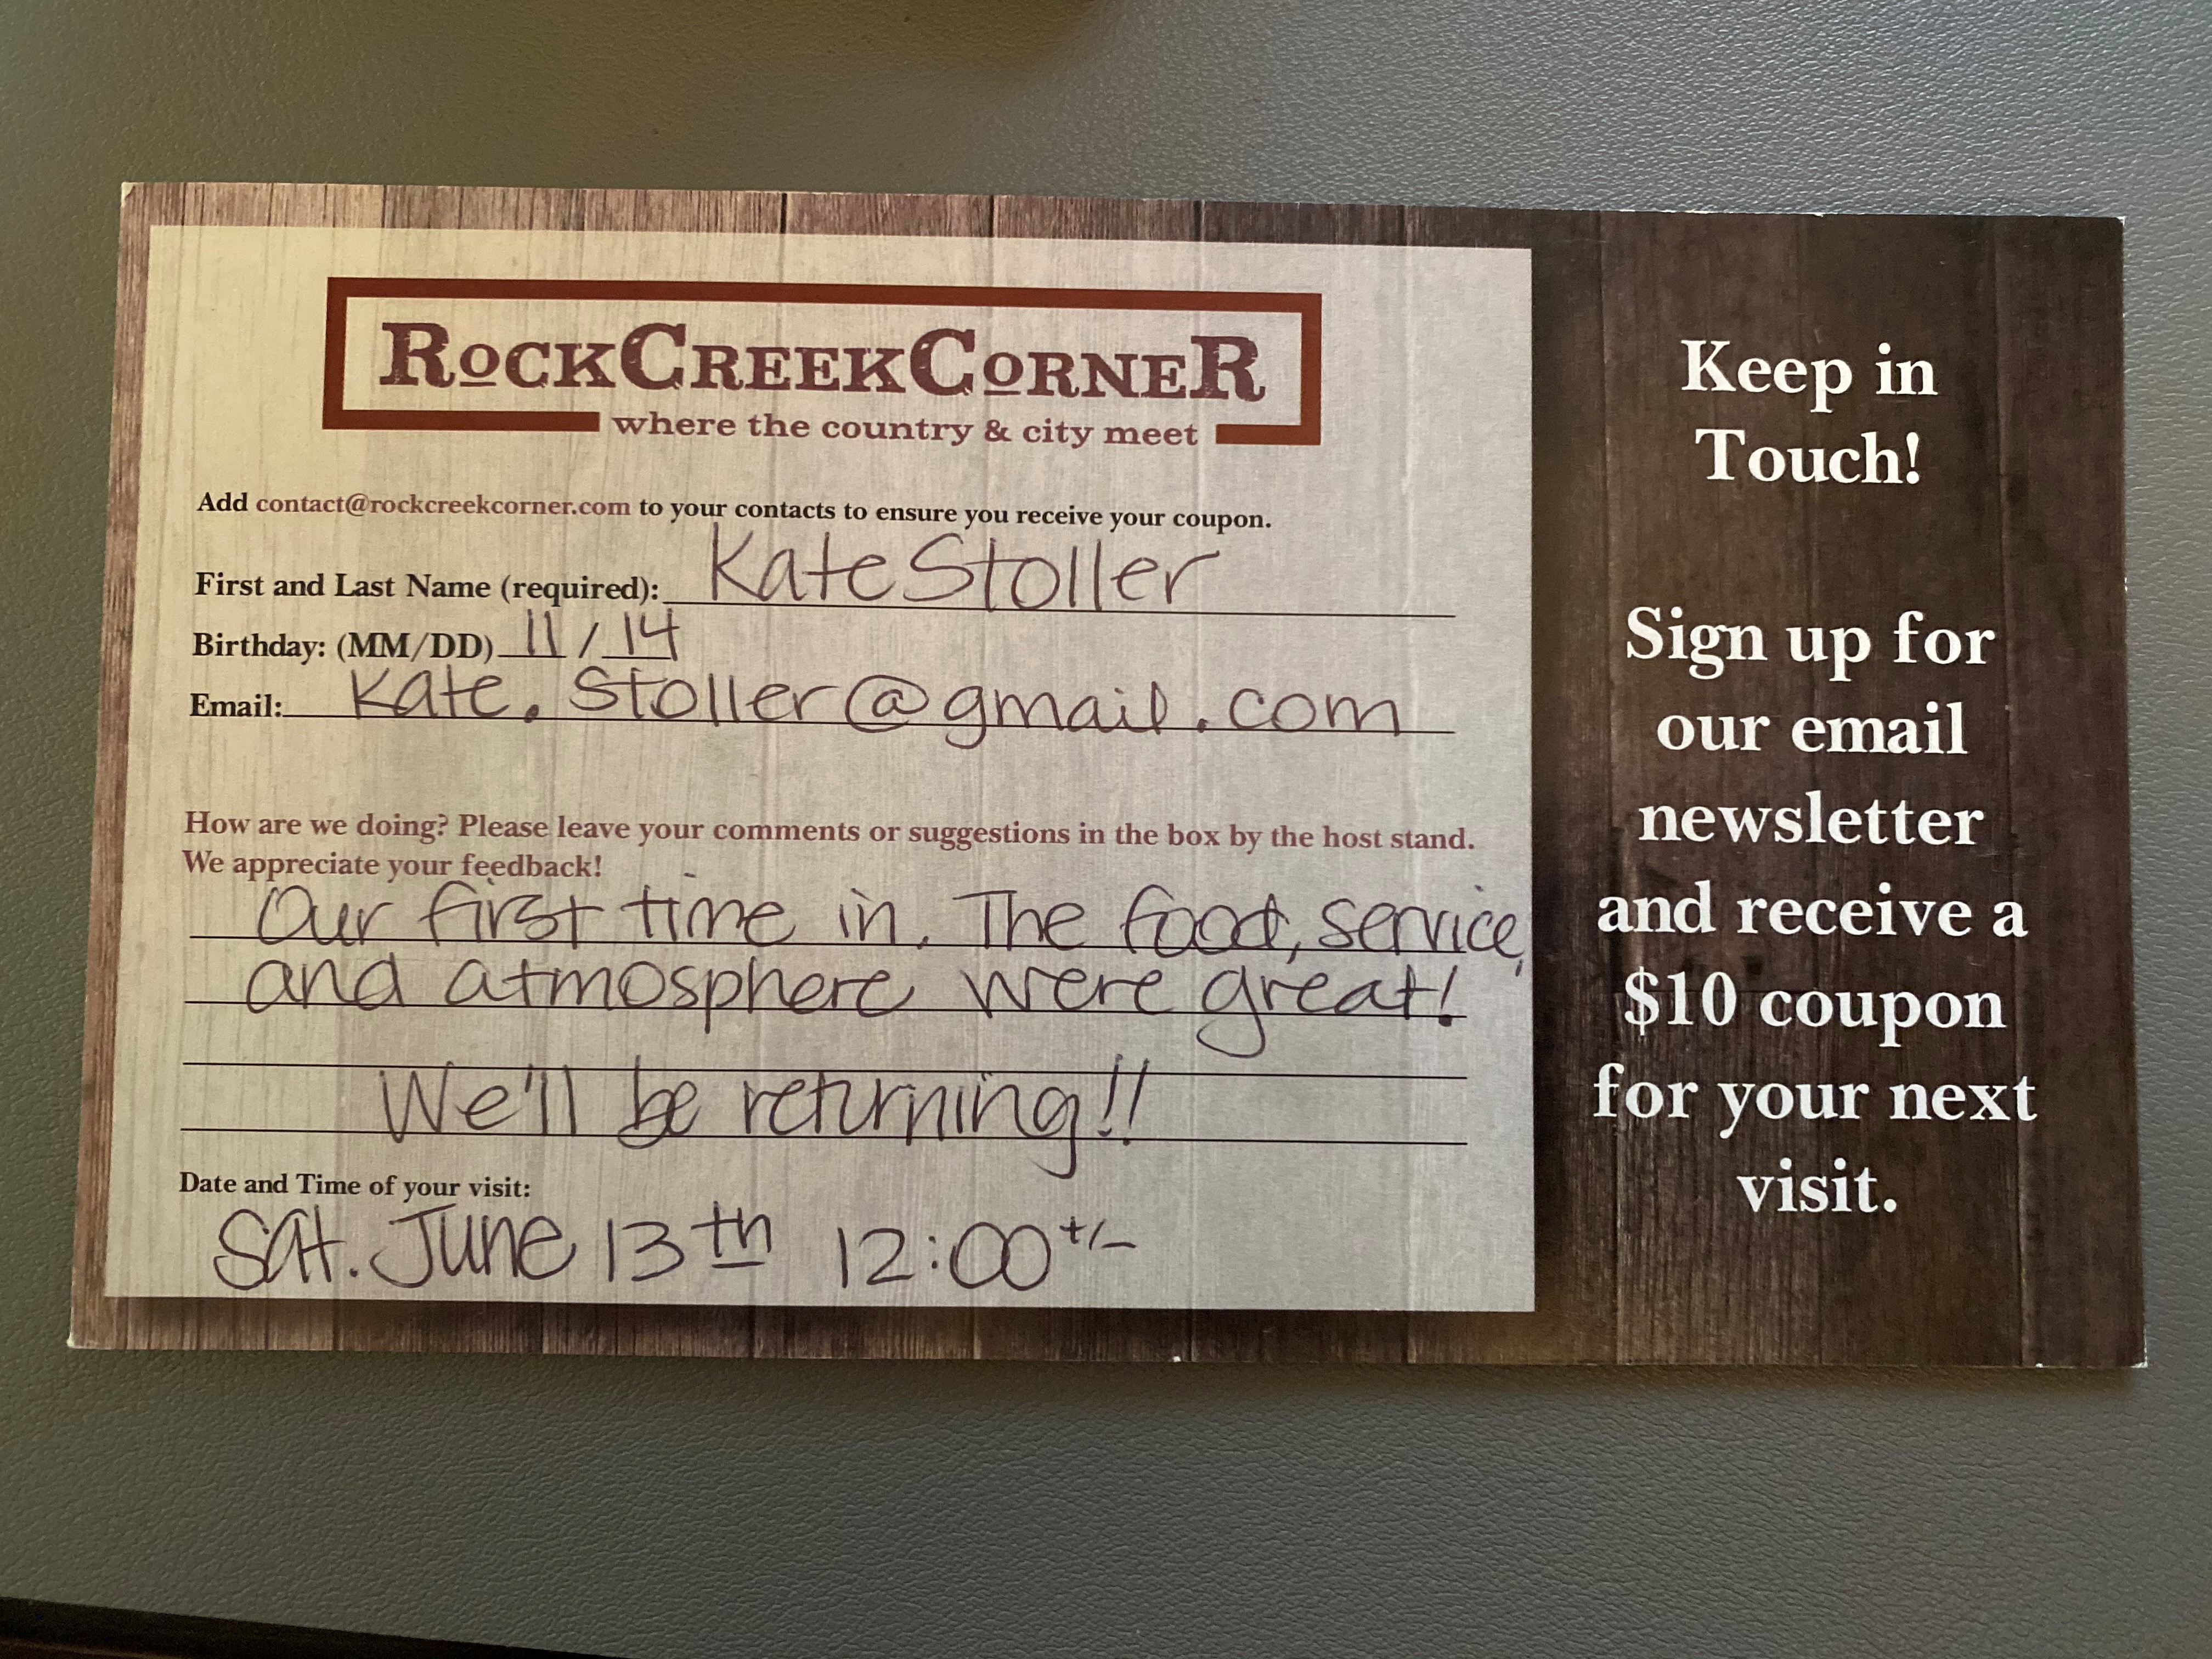 RockCreekCorner
where the country & city meet
Add contact@rockcreekcorner.com to your contacts to ensure you receive your coupon.
First and Last Name (required): Kate Stoller
Birthday: (MM/DD) 11 / 14
Email: Kate.Stoller@gmail.com
How are we doing? Please leave your comments or suggestions in the box by the host stand.
We appreciate your feedback!
Our first time in. The food, service,
and atmosphere were great!
We'll be returning!!
Date and Time of your visit:
Sat. June 13th 12:00 +/-
Keep in
Touch!
Sign up for
our email
newsletter
and receive a
$10 coupon
for your next
visit.